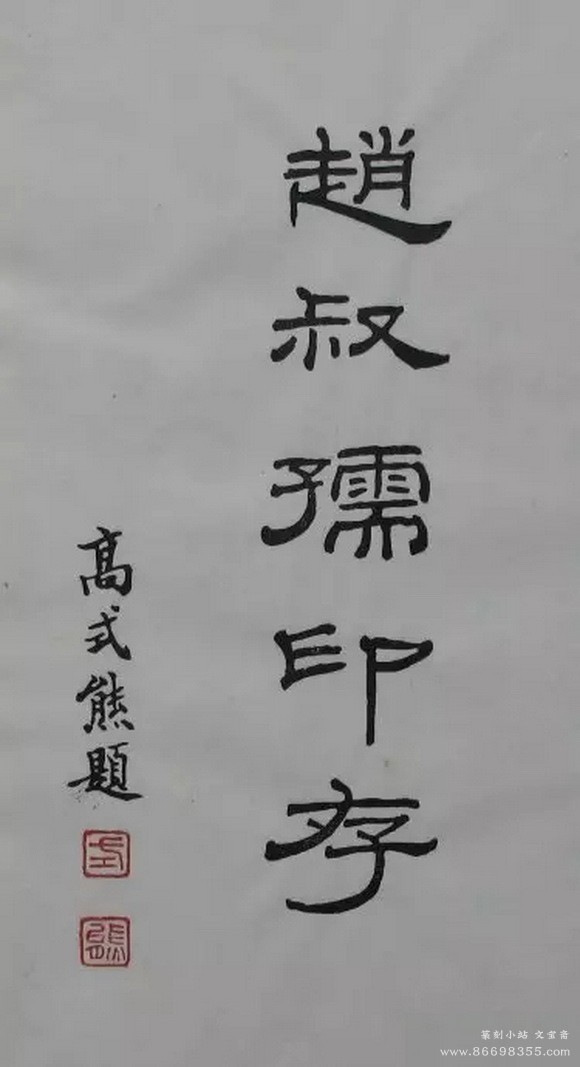 趙叔孺印存
高式熊題
式
熊
篆刻小站 文宝斋
www.86698355.com